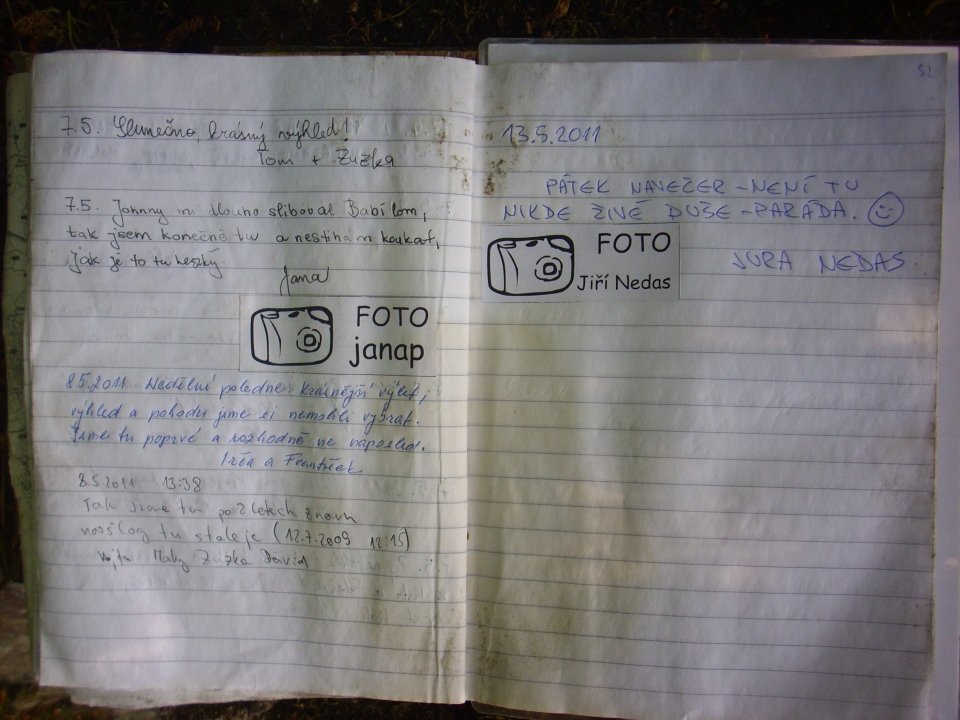 7.5. Slunečno, krásný výhled!
Tom + Zuzka
7.5. Johnny mi dlouho sliboval Babí lom,
tak jsem konečně tu a nestíhám koukat,
jak je to tu hezký.
Jana
FOTO
janap
8.5.2011 Nedělní poledne. Krásnější výlet,
výhled a pohodu jsme si nemohli vybrat.
Jsme tu poprvé a rozhodně ne naposled.
Irča a František
8.5.2011 13:38
Tak jsme tu po 2 letech znovu
tu stále je (12.7.2009 12:15)
Vojta Maky Zuzka David
52
13.5.2011
PÁTEK NAVEČER - NENÍ TU
NIKDE ŽIVÉ DUŠE - PARÁDA.
FOTO
Jiří Nedas
JURA NEDAS